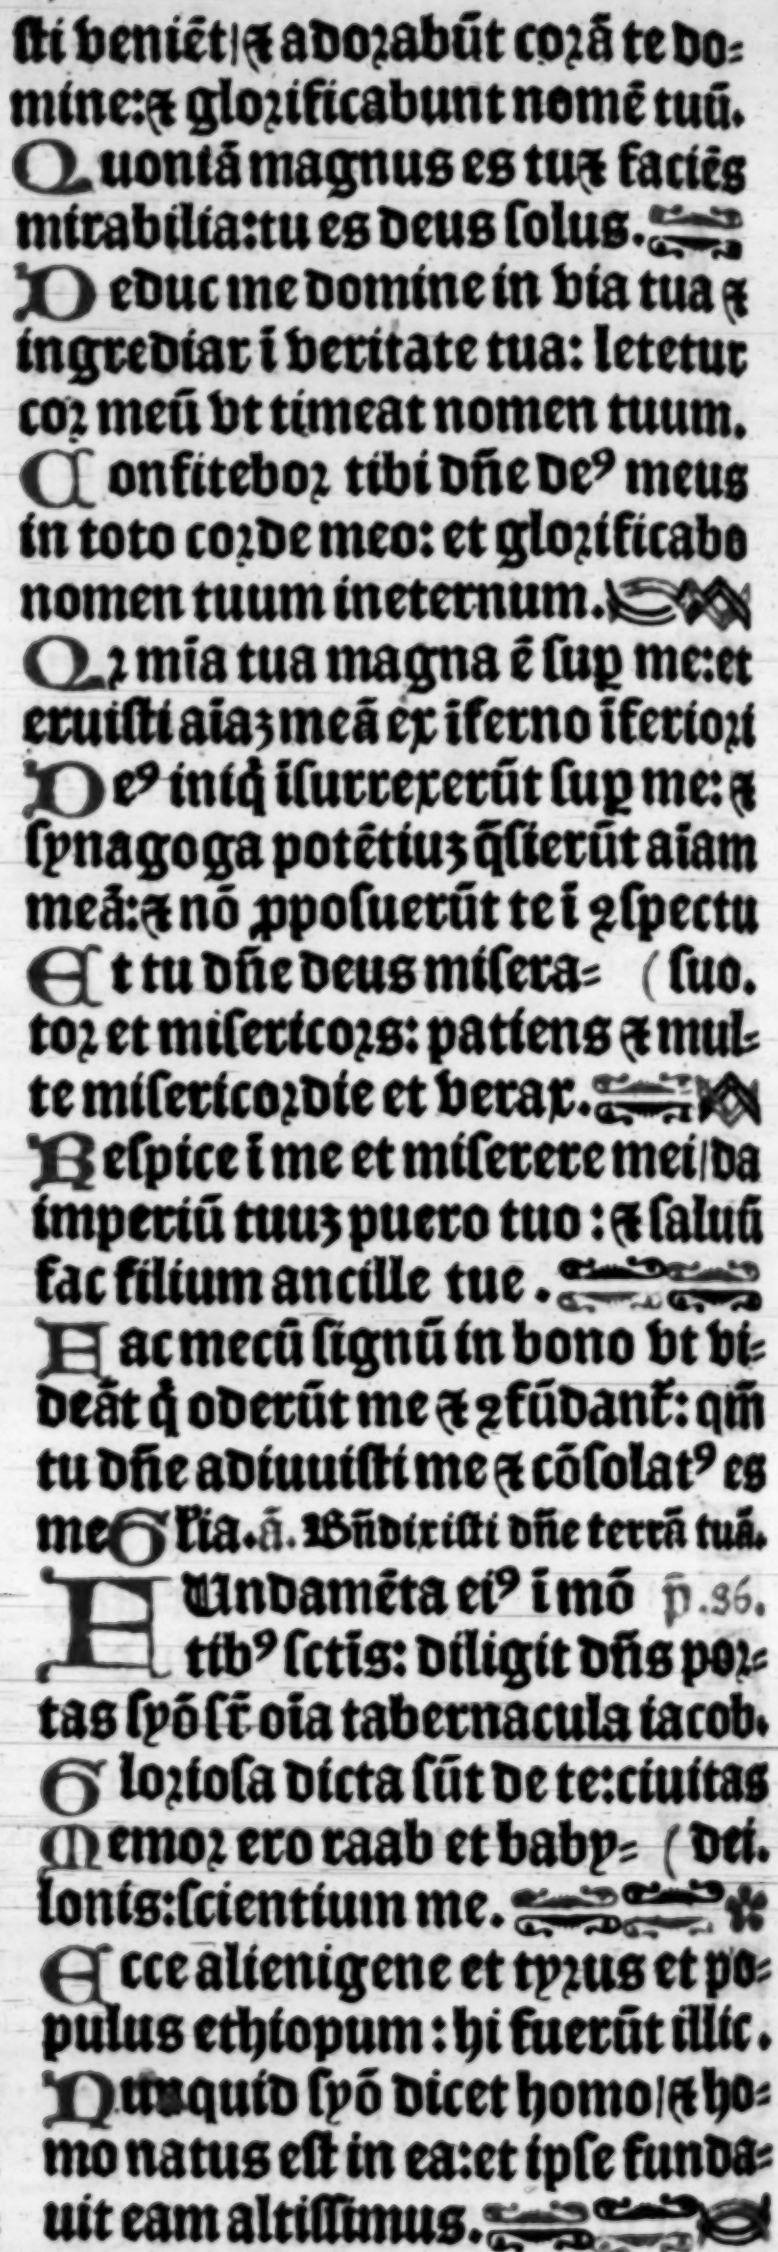 sti veniēt/⁊ adorabūt corā te do-
mine:⁊ glorificabunt nomē tuū.
Quoniā magnus es tu⁊ faciēs
mirabilia:tu es deus solus.
Deduc me domine in via tua ⁊
ingrediar ī veritate tua: letetur
cor meū vt timeat nomen tuum.
Confitebor tibi dñe deꝰ meus
in toto corde meo: et glorificabo
nomen tuum ineternum.
Qr mīa tua magna ē suꝑ me:et
eruisti aīaȝ meā ex īferno īferiori
Deꝰ iniq̇ īsurrexerūt suꝑ me: ⁊
synagoga potētiuȝ q̄sierūt aīam
meā:⁊ nō ꝓposuerūt te ī ꝯspectu
Et tu dñe deus misera- (suo.
tor et misericors: patiens ⁊ mul-
te misericordie et verax.
Respice ī me et miserere mei/da
imperiū tuuȝ puero tuo : ⁊ saluū
fac filium ancille tue .
Fac mecū signū in bono vt vi-
deāt q̇ oderūt me ⁊ ꝯfūdant᷑: qm̄
tu dñe adiuuisti me ⁊ cōsolatꝰ es
me Gl̄ia.ā. Bñdixisti dñe terrā tuā.
FUndamēta eiꝰ ī mō p̄.86.
tibꝰ sctīs: diligit dñs por-
tas syō sr̄ oīa tabernacula iacob.
Gloriosa dicta sūt de te:ciuitas
Memor ero raab et baby- (dei.
lonis:scientium me.
Ecce alienigene et tyrus et po-
pulus ethiopum : hi fuerūt illic.
Nunquid syō dicet homo/⁊ ho-
mo natus est in ea:et ipse funda-
uit eam altissimus.